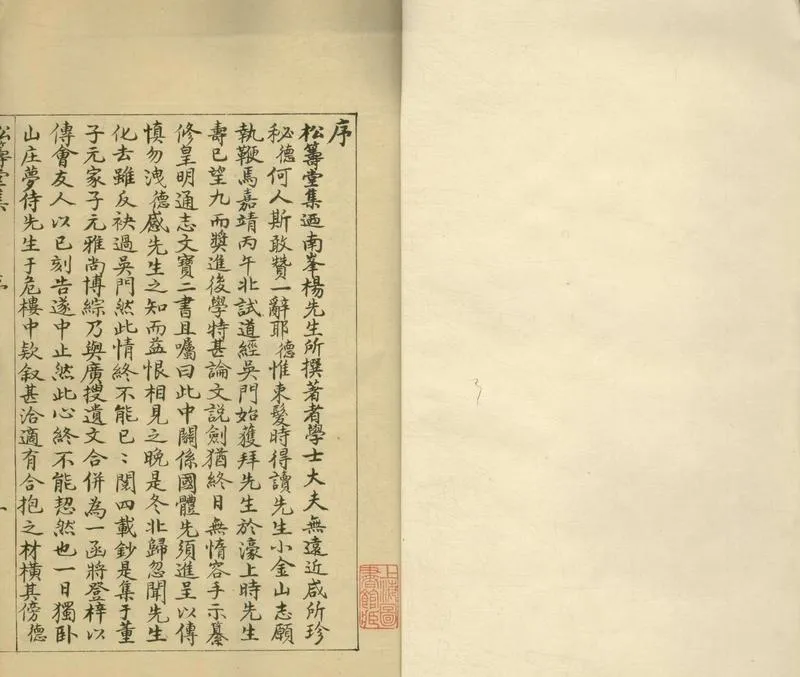 序
松籌堂集迺南峯楊先生所撰著者學士大夫無遠近咸所珍
秘德何人斯敢贊一辭耶德惟束髮時得讀先生小金山志願
執鞭馬嘉靖丙午北試道經吳門始獲拜先生於濠上時先生
壽已望九而獎進後學特甚論文説劍猶終日無惰容手示纂
修皇明通志文寶二書且囑曰此中關係國體先須進呈以傳
慎勿洩德感先生之知而益恨相見之晩是冬北歸忽聞先生
化去雖反袂過吳門然此情終不能已〻閲四載鈔是集于董
子元家子元雅尚博綜乃與廣搜遺文合併為一函將登梓以
傳會友人以已刻告遂中止然此心終不能恝然也一日獨卧
山庄夢侍先生于危樓中欵叙甚洽適有合抱之材橫其傍德
松籌堂集 序 一
上海圖書館藏